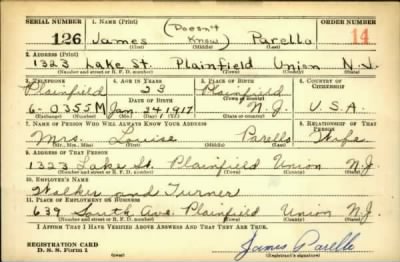 SERIAL NUMBER 1. NAME (Print) ORDER NUMBER
126 James (Doesn't Know) Parello 14
(First) (Middle) (Last)
2. ADDRESS (Print)
1323 Lake St. Plainfield Union N.J.
(Number and street or R. F. D. number) (Town) (County) (State)
3. TELEPHONE 4. AGE IN YEARS 5. PLACE OF BIRTH 6. COUNTRY OF CITIZENSHIP
Plainfield 23 Plainfield
(Exchange) DATE OF BIRTH (Town or county)
6-0355M Jan. 24 1917 N.J. U.S.A.
(Number) (Mo.) (Day) (Yr.) (State or country)
7. NAME OF PERSON WHO WILL ALWAYS KNOW YOUR ADDRESS 8. RELATIONSHIP OF THAT PERSON
Mrs. Louise Parello Wife
(Mr., Mrs., Miss) (First) (Middle) (Last)
9. ADDRESS OF THAT PERSON
1323 Lake St. Plainfield Union N.J.
(Number and street or R. F. D. number) (Town) (County) (State)
10. EMPLOYER'S NAME
Walker and Turner
11. PLACE OF EMPLOYMENT OR BUSINESS
639 South Ave. Plainfield Union N.J.
(Number and street or R. F. D. number) (Town) (County) (State)
I AFFIRM THAT I HAVE VERIFIED ABOVE ANSWERS AND THAT THEY ARE TRUE.
REGISTRATION CARD James Parello
D. S. S. Form 1 (Registrant's signature)